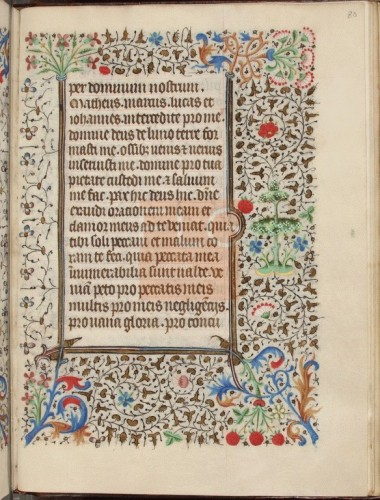 per dominum nostrum.
Matheus. marcus. lucas et
iohannes. intercedite pro me
domine deus de limo terre for
masti me. ossib; uenis & neruis
inseruisti me. domine pro tua
pietate custodi me. & saluum
me fac. pax hic deus hic. dñe
exaudi orationem meam et
clamor meus ad te veniat. quia
tibi soli peccaui et malum co
ram te feci. quia peccata mea
innumerabilia sunt valde. ve
niā peto pro peccatis meis
multis pro meis negligencijs.
pro uana gloria. pro conci